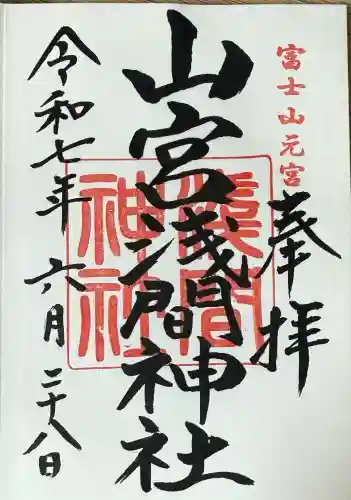 富士山元宮
奉拝
山宮浅間神社
淺間
神社
令和七年六月二十八日